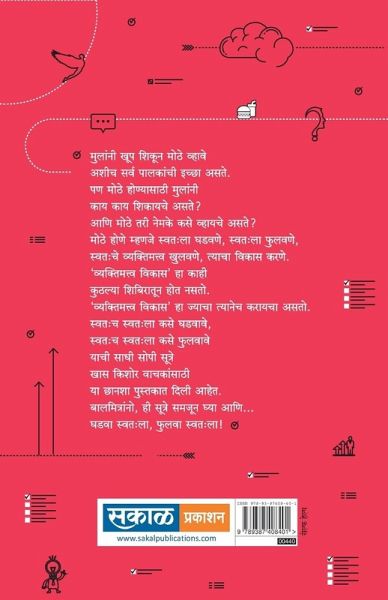 मुलांनी खूप शिकून मोठे व्हावे
अशीच सर्व पालकांची इच्छा असते.
पण मोठे होण्यासाठी मुलांनी
काय काय शिकायचे असते?
आणि मोठे तरी नेमके कसे व्हायचे असते?
मोठे होणे म्हणजे स्वतःला घडवणे, स्वतःला फुलवणे,
स्वतःचे व्यक्तिमत्त्व खुलवणे, त्याचा विकास करणे.
'व्यक्तिमत्त्व विकास' हा काही
कुठल्या शिबिरातून होत नसतो.
'व्यक्तिमत्त्व विकास' हा ज्याचा त्यानेच करायचा असतो.
स्वतःच स्वतःला कसे घडवावे,
स्वतःच स्वतःला कसे फुलवावे
याची साधी सोपी सूत्रे
खास किशोर वाचकांसाठी
या छानशा पुस्तकात दिली आहेत.
बालमित्रांनो, ही सूत्रे समजून घ्या आणि...
घडवा स्वतःला, फुलवा स्वतःला!
सकाळ प्रकाशन
www.sakalpublications.com
ISBN 978-93-87408-40-1
9 789387 408401
00440